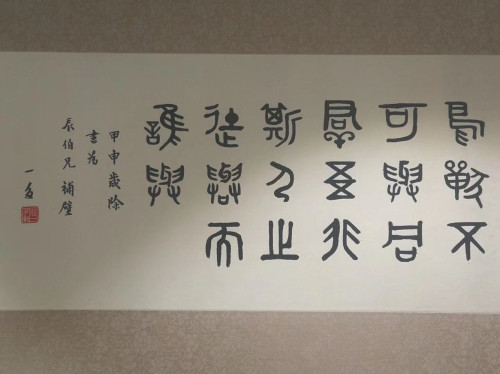 鳥獸不
可與同
羣吾非
斯人之
徒與而
誰與
甲申歲除
書為
辰伯兄補壁
一多